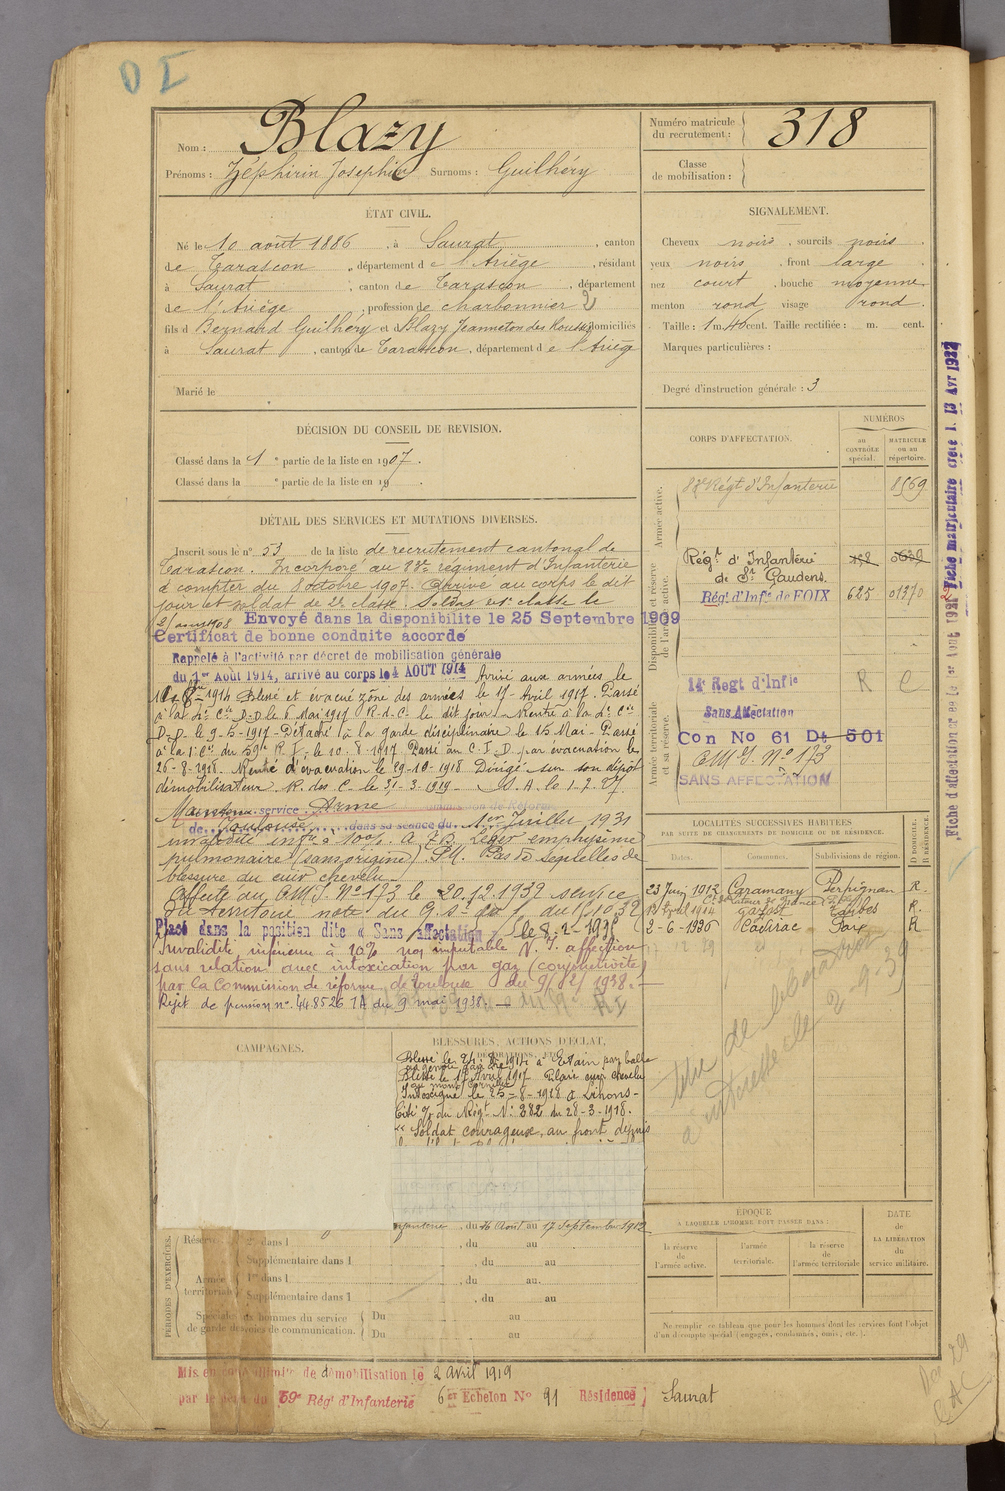 D I
Nom : Blazy
Prénoms : Zéphirin Josephin Surnoms : Guilhéry
Numéro matricule du recrutement : 318
Classe de mobilisation :
ÉTAT CIVIL.
Né le 10 août 1886, à Saurat, canton
de Tarascon, département de l'Ariège, résidant
à Saurat, canton de Tarascon, département
de l'Ariège, profession de charbonnier 2
fils d Bernard Guilhéry et Blazy Jeanneton des Rousse domiciliés
à Saurat, canton de Tarascon, département de l'Ariège
Marié le
SIGNALEMENT.
Cheveux noirs, sourcils noirs
yeux noirs, front large
nez court, bouche moyenne
menton rond visage rond.
Taille : 1 m. cent. Taille rectifiée : m. cent.
Marques particulières :
Degré d'instruction générale : 3
DÉCISION DU CONSEIL DE REVISION.
Classé dans la 1e partie de la liste en 1907.
Classé dans la e partie de la liste en 19 .
DÉTAIL DES SERVICES ET MUTATIONS DIVERSES.
Inscrit sous le n° 53 de la liste de recrutement cantonal de
Tarascon. Incorporé au régiment d'Infanterie
à compter du 8 octobre 1907. Arrivé au corps le dit
jour et soldat de 2e classe. Soldat classe le
1908 Envoyé dans la disponibilité le 25 Septembre 1909
Certificat de bonne conduite accordé
Rappelé à l'activité par décret de mobilisation générale
du 1er Août 1914, arrivé au corps le 4 AOUT 1914 Arrivé aux armées le
1914 Blessé et évacué zône des armées le 17 Avril 1917. Passé
à la 4e Cie D.D le 6 Mai 1917 R.d.C. le dit jour. Rentré à la 4e Cie
D.D. le 9-5-1917 - Détaché à la garde disciplinaire le 15 Mai - Passé
à la 1e Cie du 59e R.I. le 10.8.1917. Passé au C.I.D. par évacuation le
26-8-1918. Rentré d'évacuation le 29-10-1918 Dirigé sur son dépôt
démobilisateur. R. des C. le 31-3-1919
Maintenu service Armé
de Toulouse dans sa séance du 1er Juillet 1931
10% Léger emphysème
pulmonaire (sans origine) P.M. Pas de séquelles de
blessure du cuir chevelu.
Affecté au C.M.I. N° 173 le 20.12.1932 service
du territoire note du G.
Placé dans la position dite « Sans affectation » le 8-2-1938
Invalidité inférieure à 10% non imputable N. I. affection
sans relation avec intoxication par gaz (conjonctivite)
par la Commission de réforme de Toulouse du 1938.
Rejet de pension n° 44.8526 IA du 9 mai 1938.
CORPS D'AFFECTATION.
NUMÉROS
au CONTRÔLE spécial.
MATRICULE ou au répertoire.
Armée active.
Régt d'Infanterie 8569
Disponibilité et réserve de l'armée active.
Régt d'Infanterie de St Gaudens.
Régt d'Infie de FOIX 625 01370
Armée territoriale et sa réserve.
14e Regt d'Infie R C
Sans Affectation
Con No 61 Dt 501
C.M.I. N° 173
SANS AFFECTATION
Fiche matriculaire créée l. 13 Avr 1932
LOCALITÉS SUCCESSIVES HABITÉES
PAR SUITE DE CHANGEMENTS DE DOMICILE OU DE RÉSIDENCE.
Dates. Communes. Subdivisions de région. D DOMICILE. R RÉSIDENCE.
23 Juin 1912 Caramany Perpignan R.
1914 Tarbes R.
2-6-1926 Cadirac Foix R
Titre de libération
à intéressé le 2-9-39
CAMPAGNES.
BLESSURES, ACTIONS D'ÉCLAT,
Blessé le 1914 à Etain par balle
Blessé le 17 Avril 1917 Plaie cuir chevelu
au mont Cornillet
Intoxiqué le 25-8-1918 à Lihons-
Cité O/ du Régt N° 282 du 28-3-1918.
" Soldat courageux, au front depuis
du 26 Aout au 17 Septembre 1912
PÉRIODES D'EXERCICES.
Réserve
dans l , du au
Supplémentaire dans l , du au
Armée territoriale
1re dans l , du au
Supplémentaire dans l , du au
Spéciale aux hommes du service de garde des voies de communication.
Du au
Du au
ÉPOQUE
A LAQUELLE L'HOMME DOIT PASSER DANS :
la réserve de l'armée active.
l'armée territoriale.
la réserve de l'armée territoriale
DATE de LA LIBÉRATION du service militaire.
Ne remplir ce tableau que pour les hommes dont les services font l'objet
d'un décompte spécial (engagés, condamnés, omis, etc.).
Mis en congé illimité de démobilisation le 2 avril 1919
par le dépôt du 59e Régt d'Infanterie 6e Echelon No 91 Résidence) Saurat